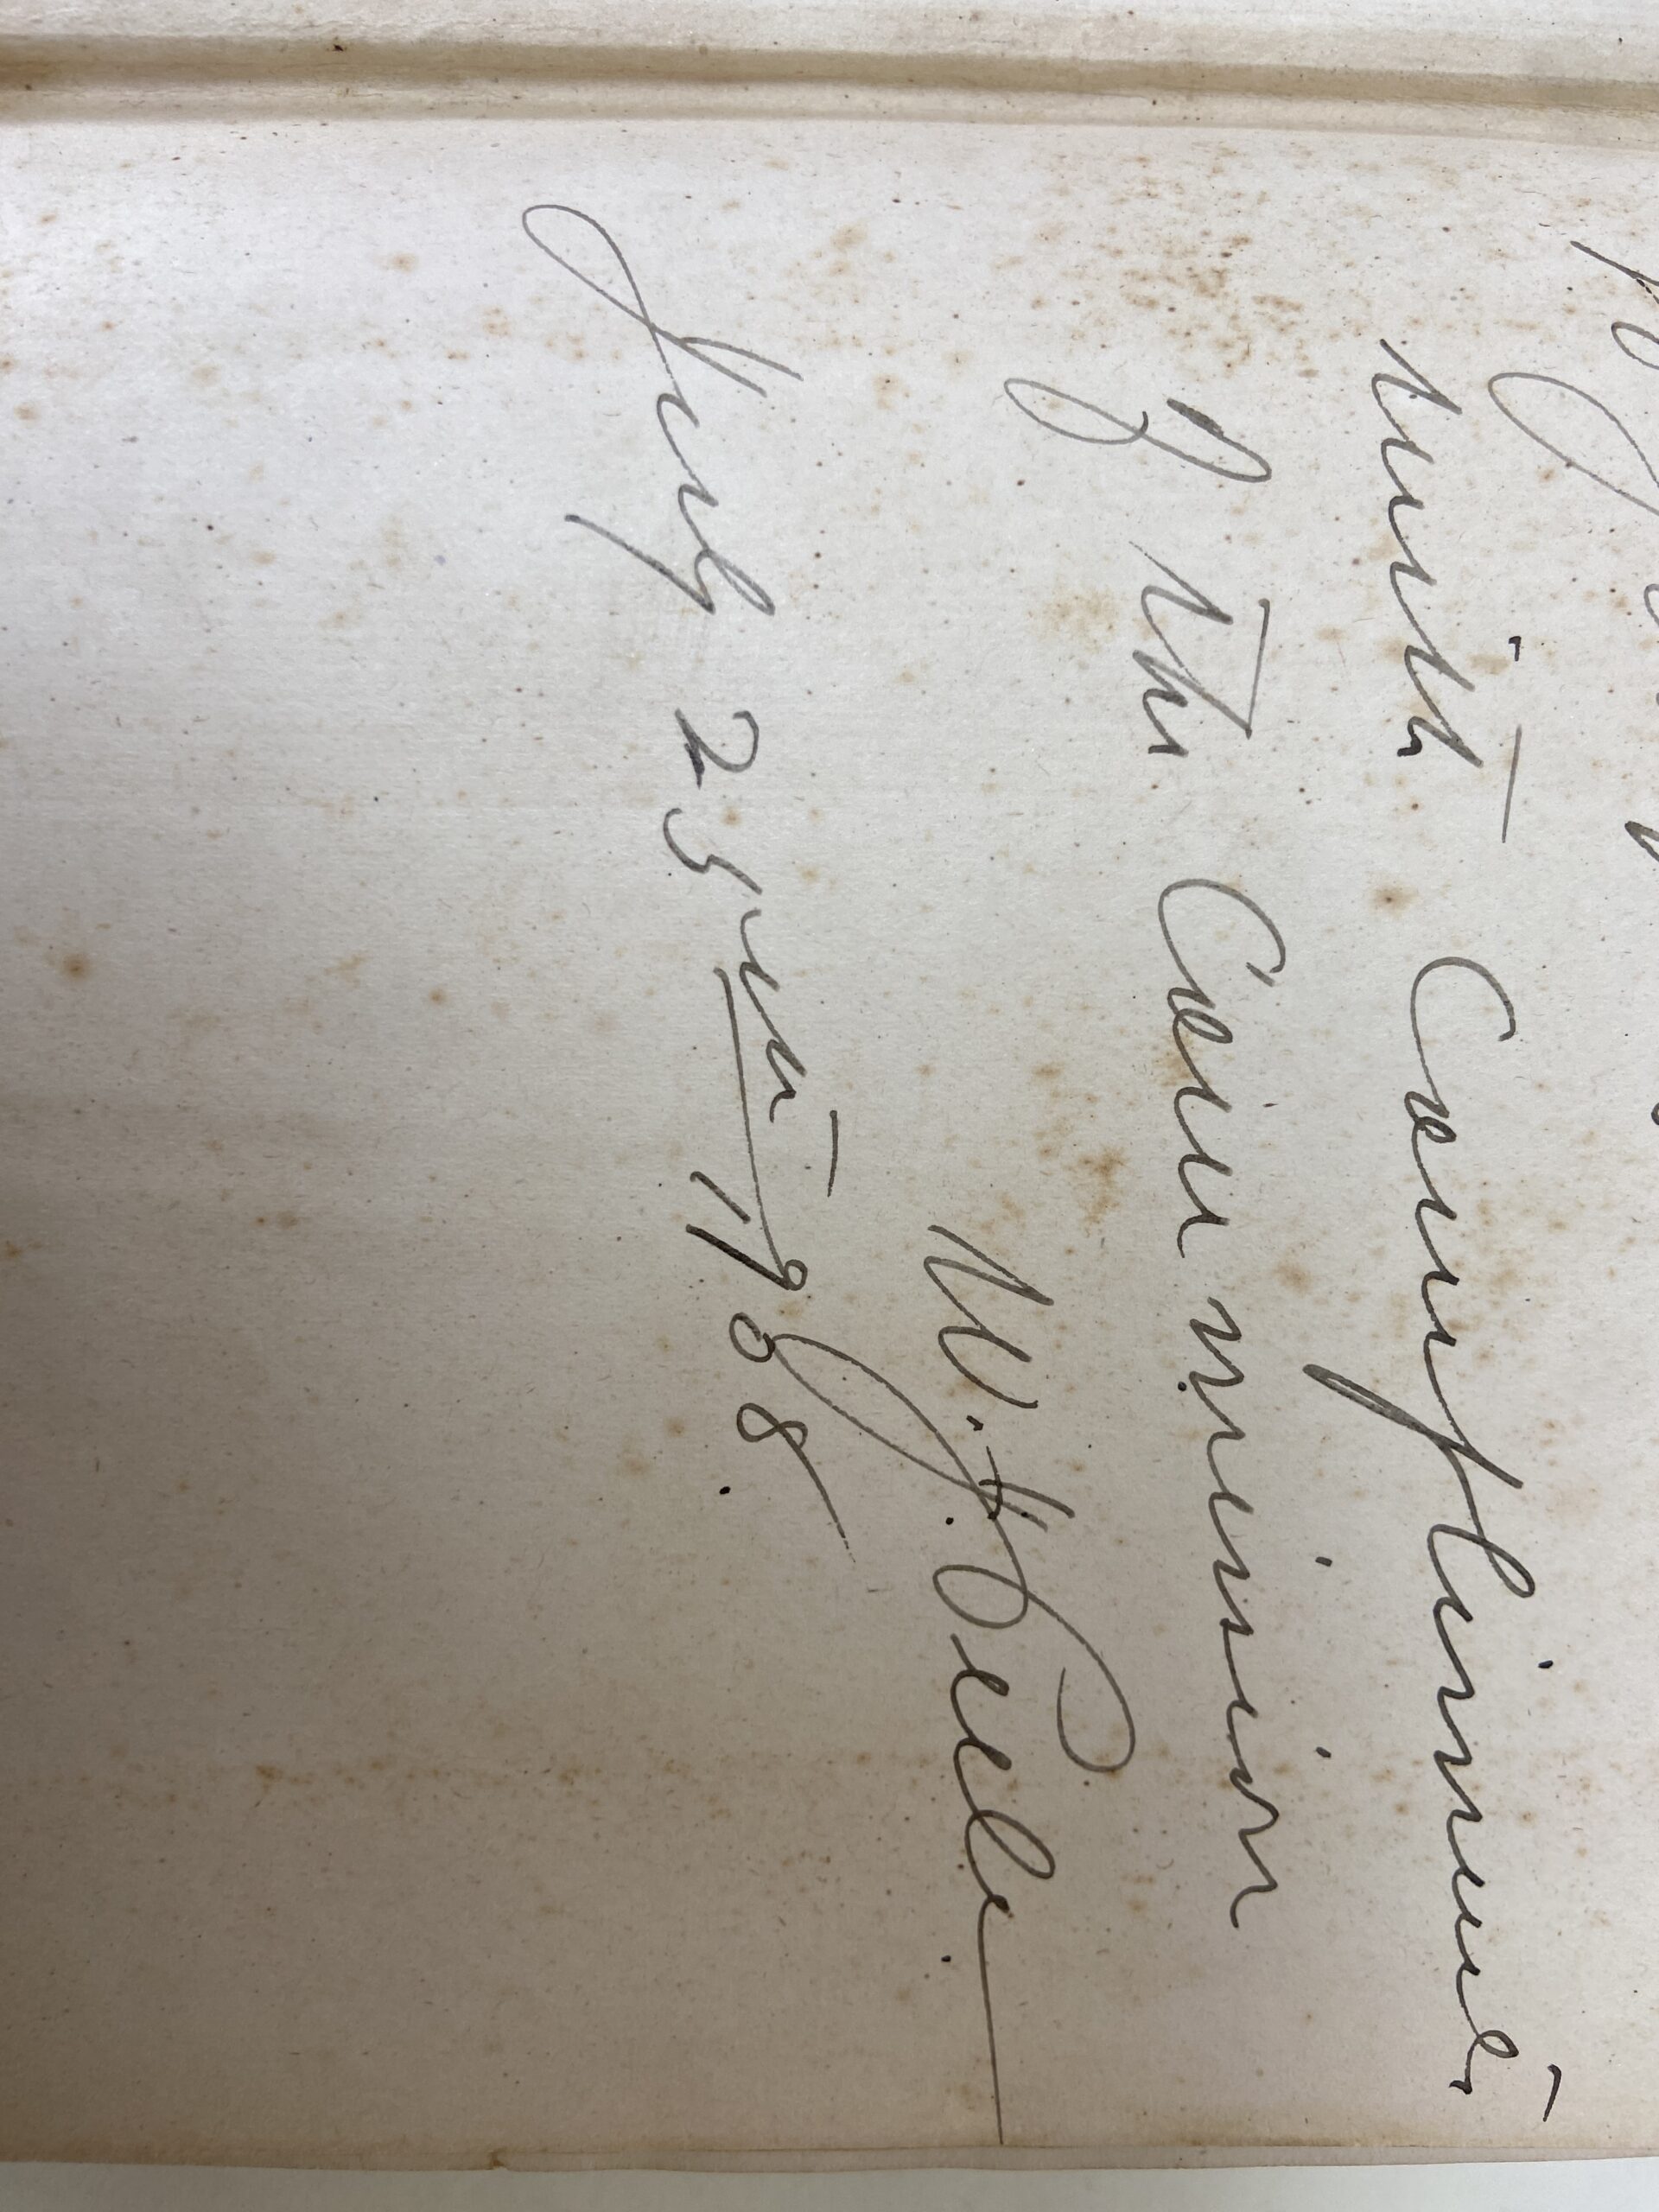 with Compliments
of the Commission
W. J. Peele
July 25th 1908.